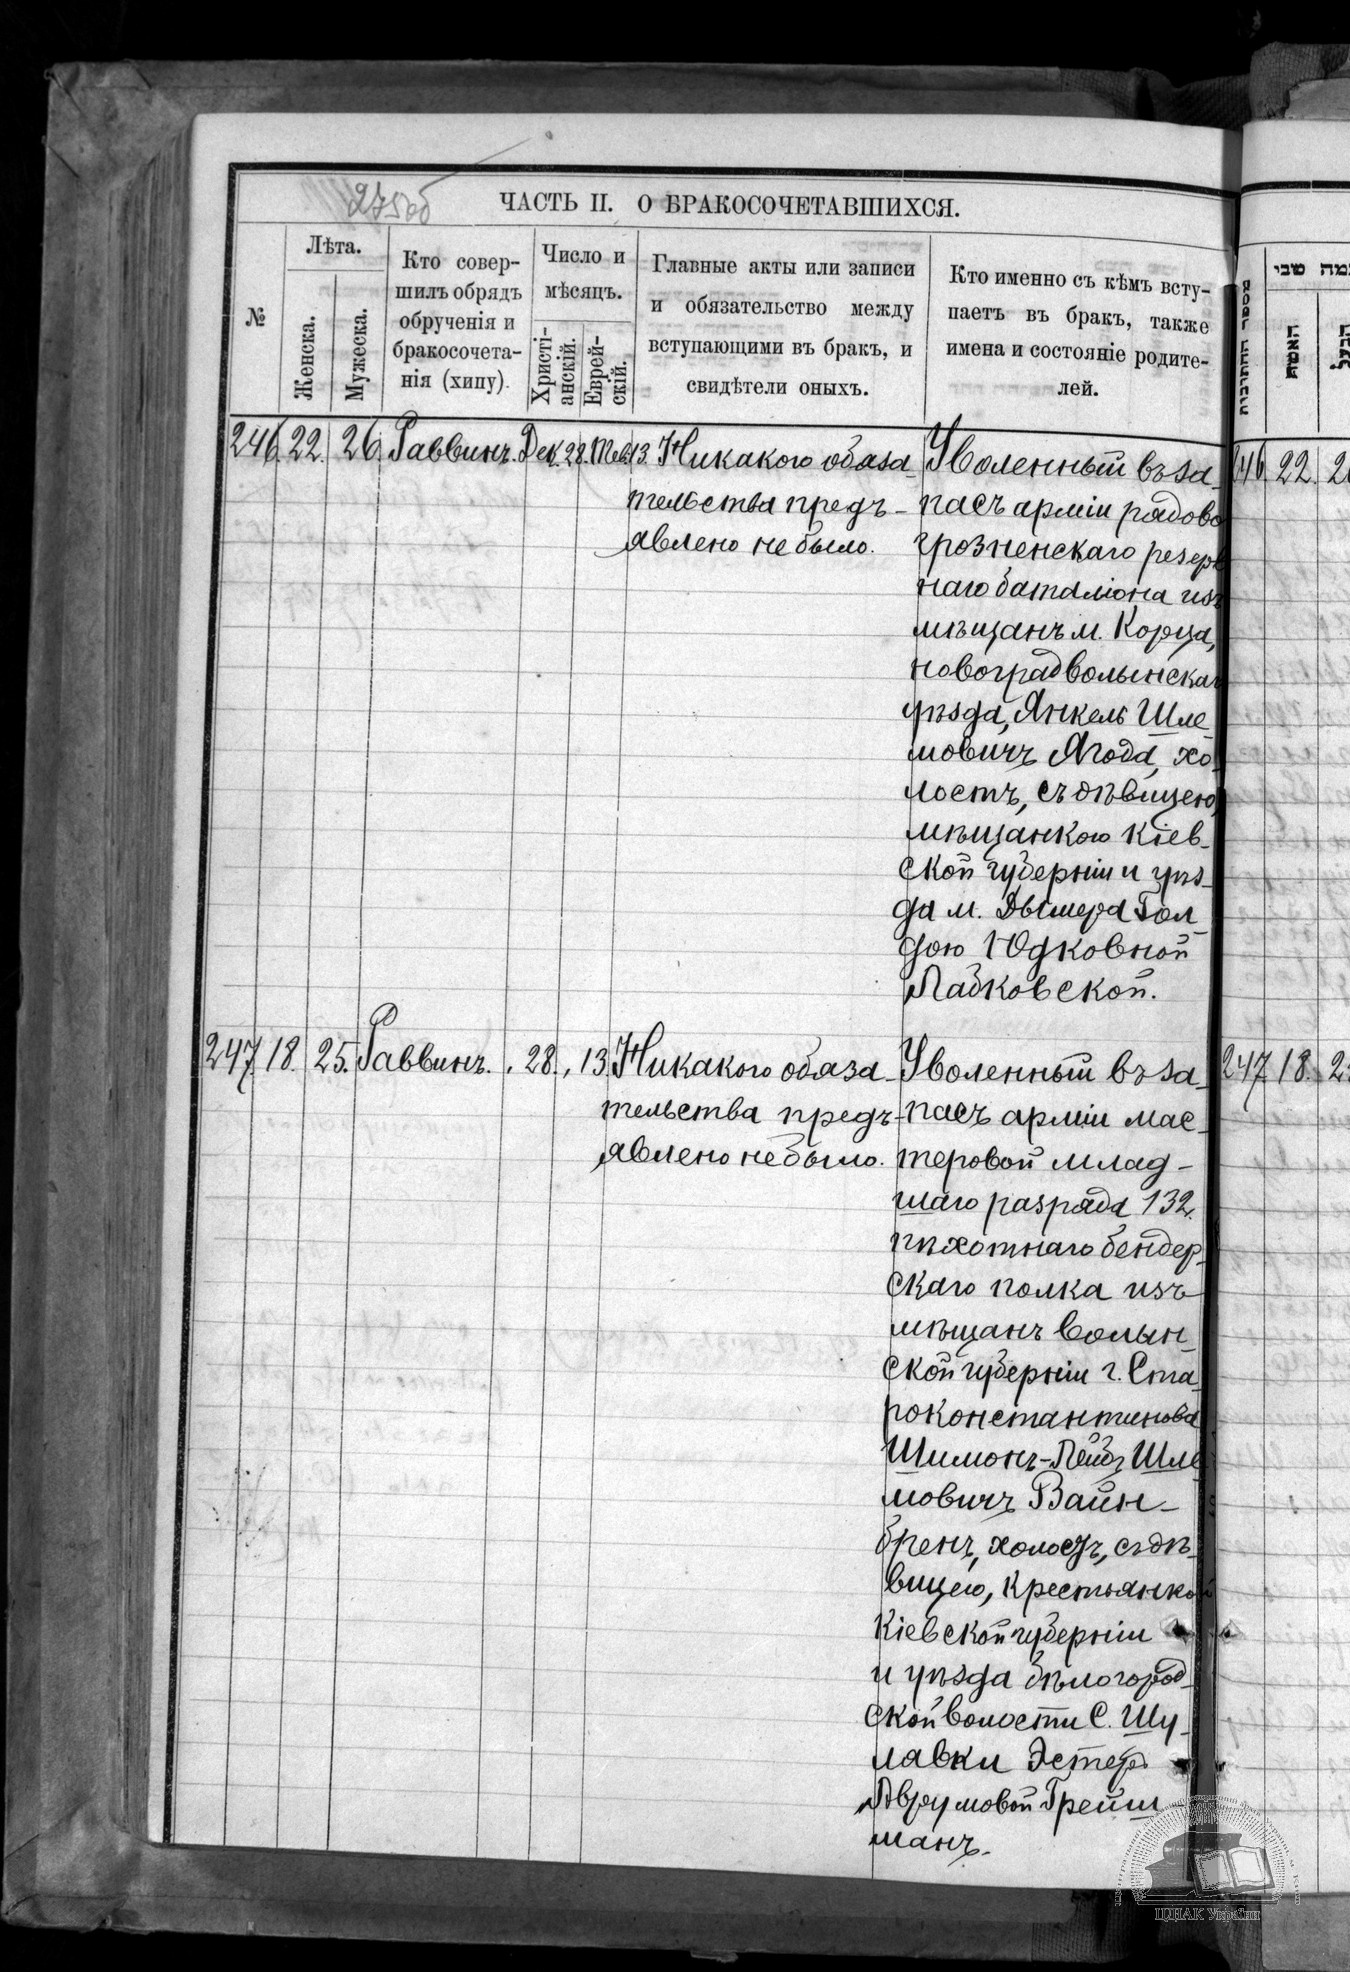 275об
ЧАСТЬ II. О БРАКОСОЧЕТАВШИХСЯ.
№
Лѣта.
Женска.
Мужеска.
Кто совер-
шилъ обрядъ
обрученія и
бракосочета-
нія (хипу).
Число и
мѣсяцъ.
Христі-
анскій.
Еврей-
скій.
Главные акты или записи
и обязательство между
вступающими въ бракъ, и
свидѣтели оныхъ.
Кто именно съ кѣмъ всту-
паетъ въ бракъ, также
имена и состояніе родите-
лей.
246. 22. 26. Раввинъ. Дек. 28. Тев. 13.
Никакого обяза-
тельства предъ-
явлено не было.
Уволенный въ за-
пасъ арміи рядово
грозненскаго резерв
наго баталіона изъ
мѣщанъ м. Корца,
новоградволынскаг
уѣзда, Янкель Шле
мовичъ Ягода, хо-
лостъ, съ дѣвицею,
мѣщанкою Кіев-
ской губерніи и уѣз-
да м. Дымера Гол
дою Юдковной
Ладковской.
247. 18. 25. Раввинъ. „ 28. „ 13.
Никакого обяза-
тельства предъ-
явлено не было.
Уволенный въ за-
пасъ арміи мас-
теровой млад-
шаго разряда 132.
пѣхотнаго бендер-
скаго полка изъ
мѣщанъ Волын-
ской губерніи г. Ста-
роконстантинова
Шимонъ-Лейбъ Шле
мовичъ Вайн-
бренъ, холостъ, съ дѣ-
вицею, крестьянкой
Кіевской губерніи
и уѣзда бѣлогород-
ской волости С. Шу-
лавки Эстеръ
Аврумовой Грейш
манъ.
246. 22. 2
247 18. 2
ЦДІАК України